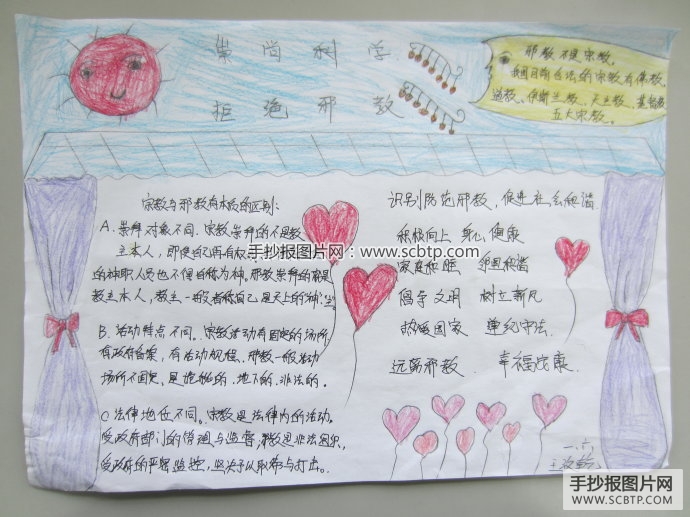 崇尚科学
拒绝邪教
邪教不是宗教,
我国目前合法的宗教有佛教,
道教、伊斯兰教、天主教、基督教
五大宗教。
宗教与邪教有本质的区别:
A. 崇拜对象不同. 宗教崇拜的不是教
主本人, 即使自己再有权
的神职人员也不得自称为神。邪教崇拜的就是
教主本人, 教主一般者称自己是天上的神
手抄报图片网:www.scbtp.com
B. 活动特点不同。宗教活动有固定的场所
有政府备案, 有活动规程、邪教一般活动
场所不固定, 是诡秘的、地下的、非法的。
C 法律地位不同。宗教是法律内的活动,
受政府部门的管理与监督, 邪教是非法组织,
受政府的严密监控, 坚决予以取缔与打击。
识别防范邪教, 促进社会和谐
积极向上 身心健康
家庭和睦 邻里和谐
倡导文明 树立新风
热爱国家 遵纪守法
远离邪教 幸福安康
一.六
手抄报图片网
WWW.SCBTP.COM